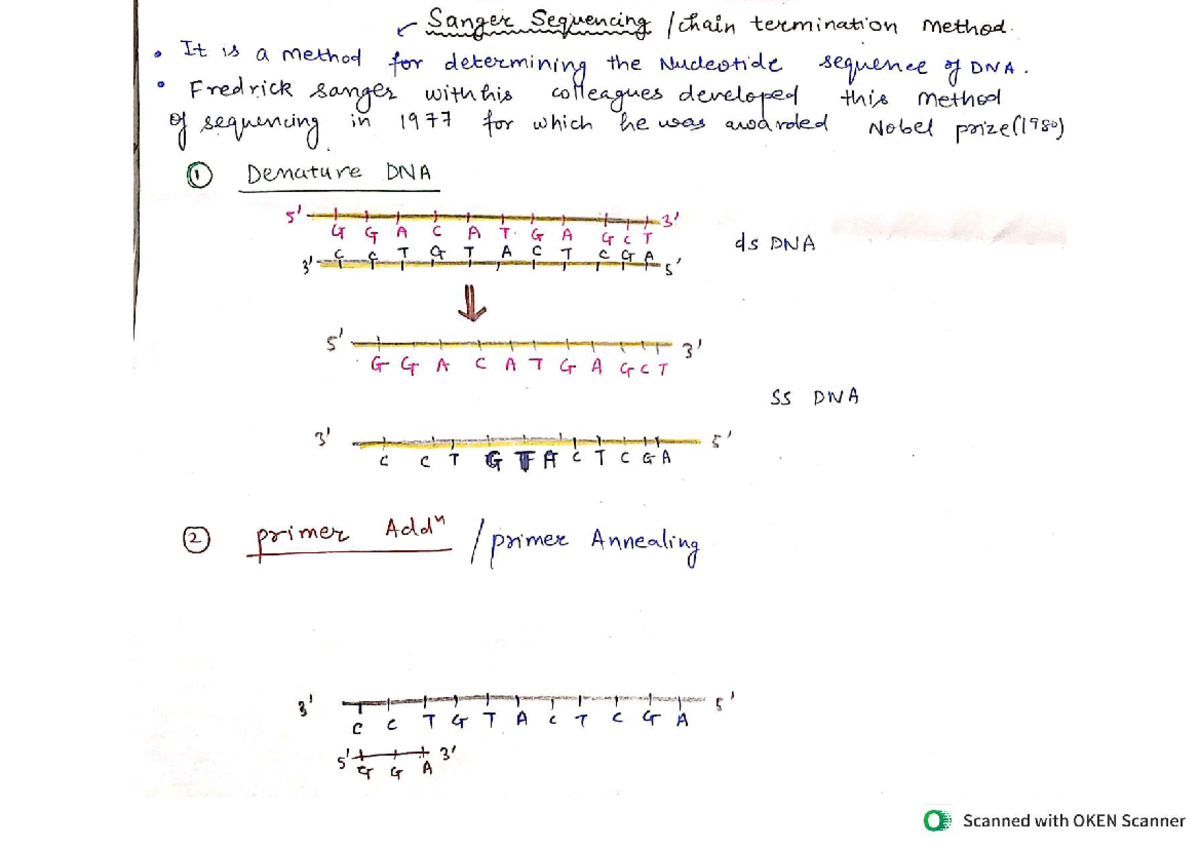 Sanger Sequencing / chain termination method.
• It is a method for determining the Nucleotide sequence of DNA.
• Fredrick sanger with his colleagues developed this method
of sequencing in 1977 for which he was awarded Nobel prize (1980)
① Denature DNA
5' G G A C A T G A G C T 3'
ds DNA
3' C C T G T A C T C G A 5'
5' G G A C A T G A G C T 3'
SS DNA
3' C C T G T A C T C G A 5'
② primer Addⁿ / primer Annealing
3' C C T G T A C T C G A 5'
5' G G A 3'
Scanned with OKEN Scanner